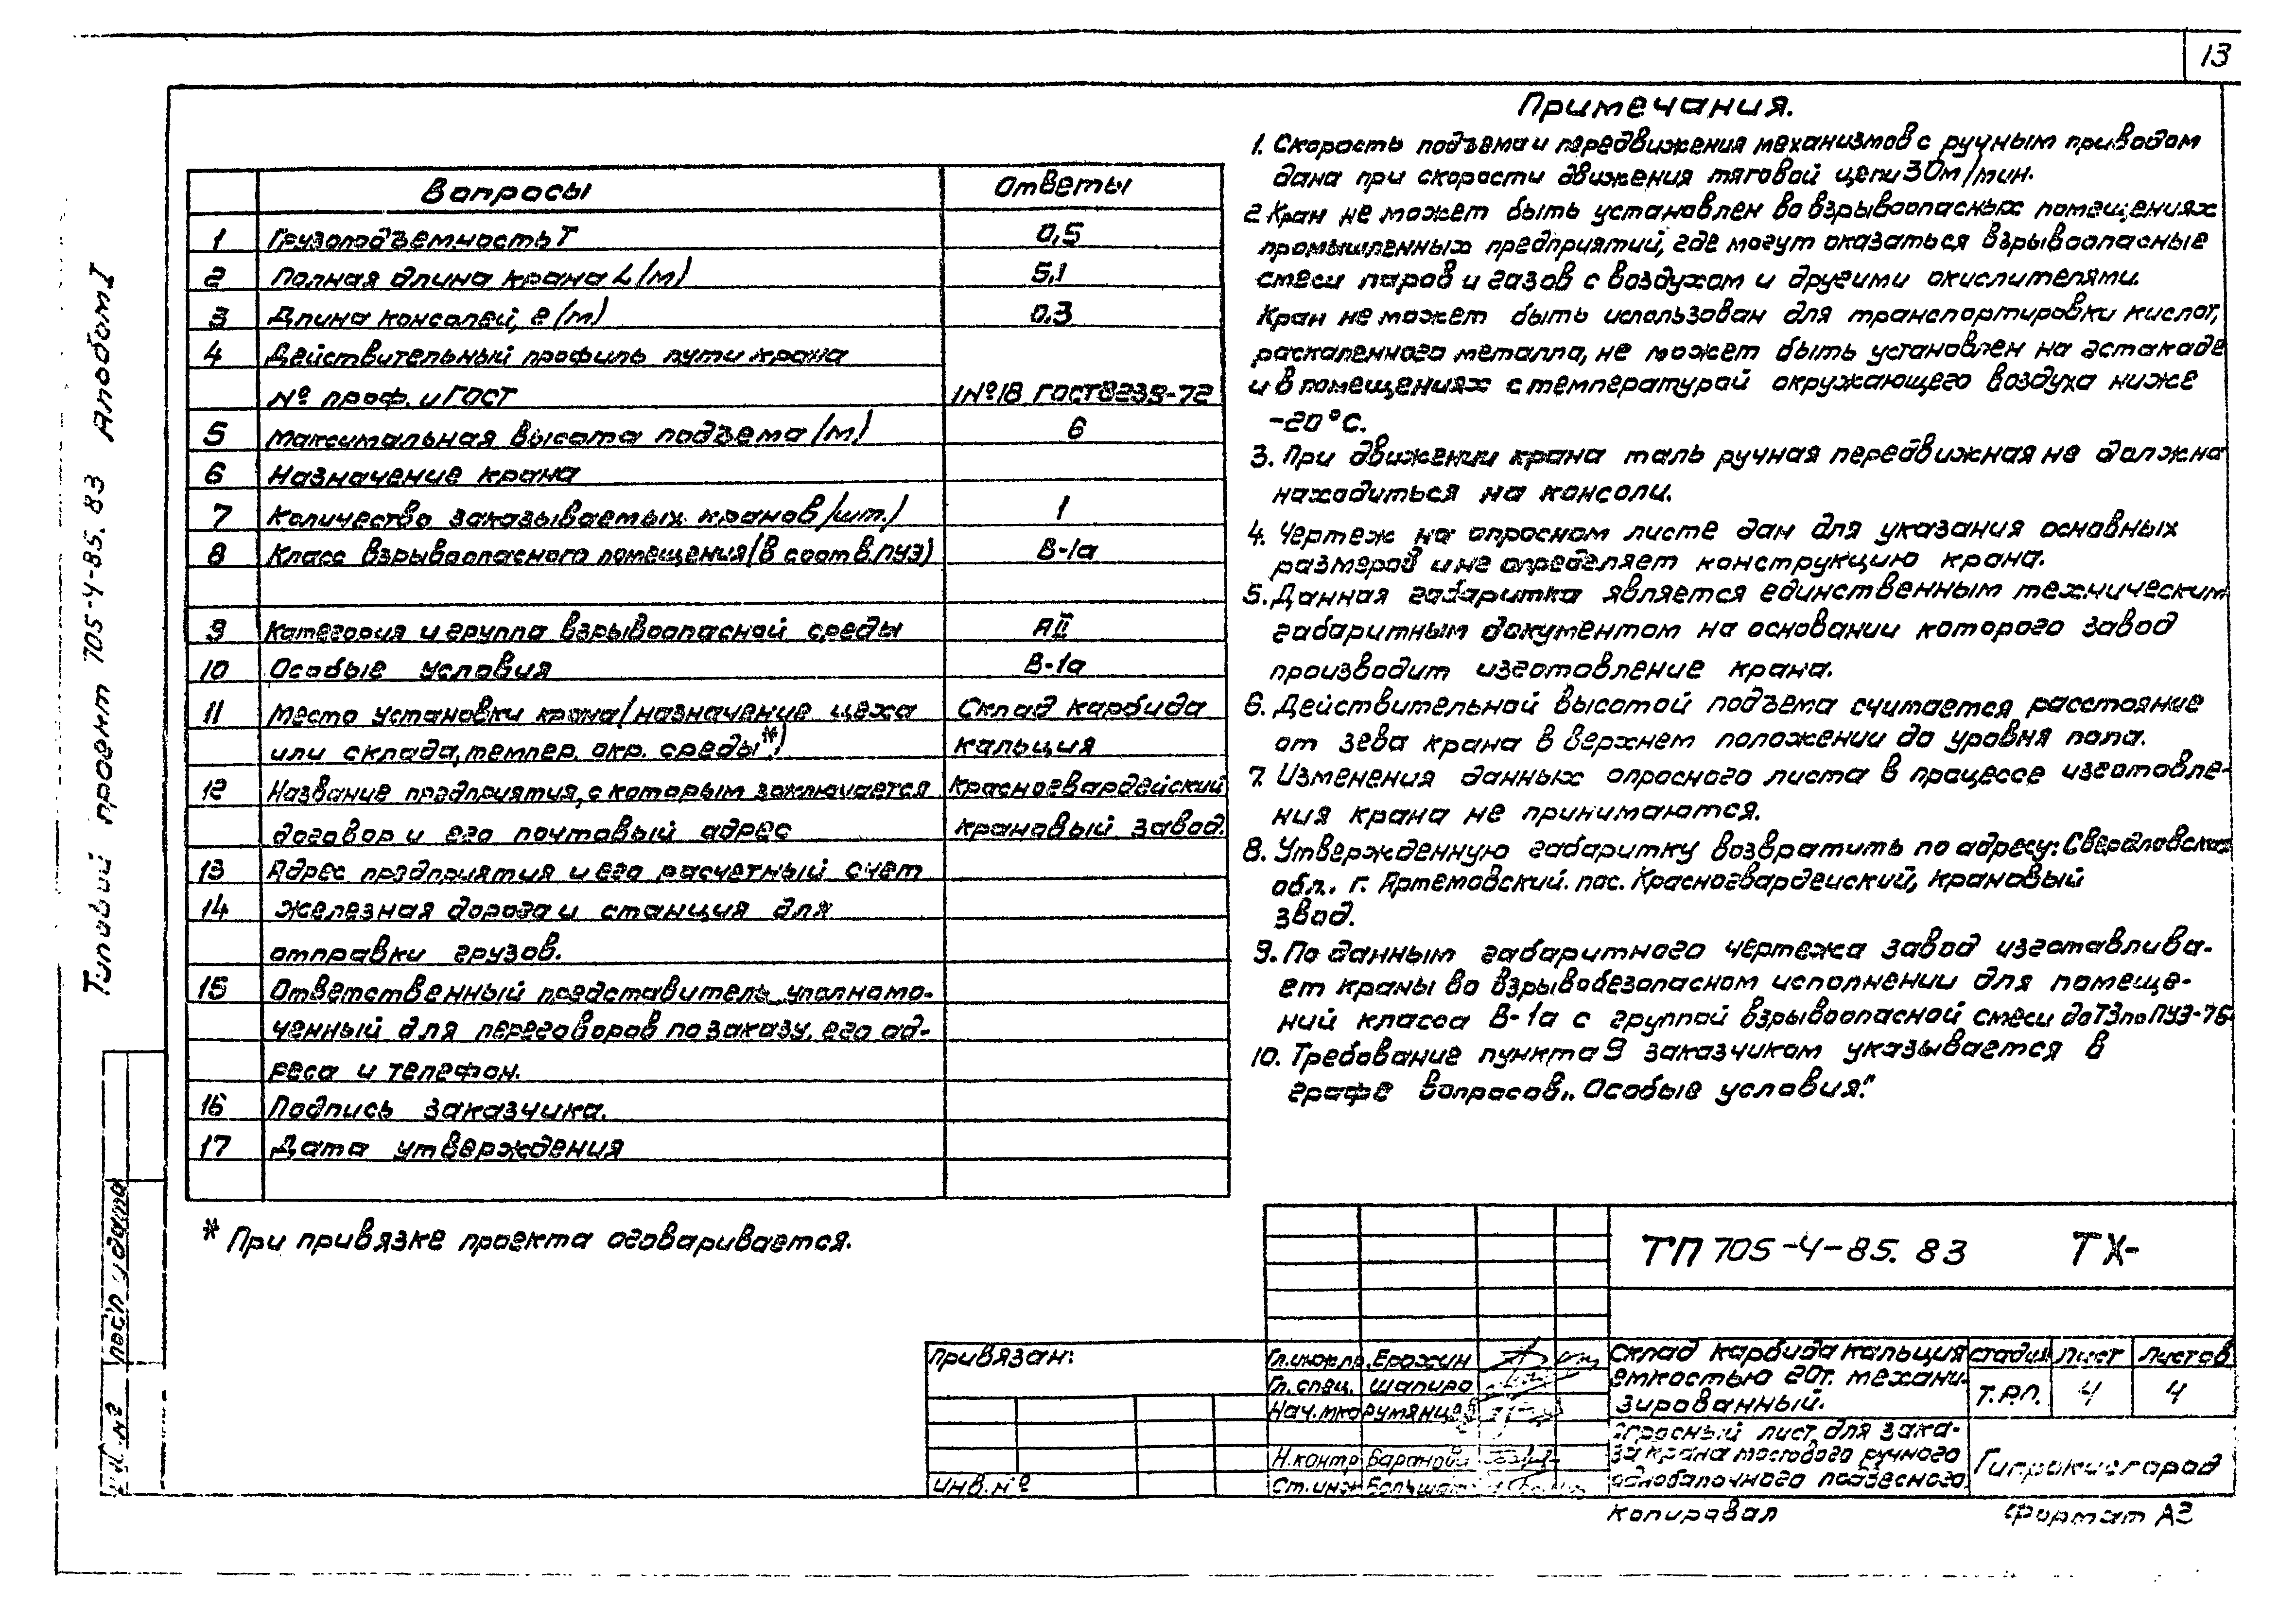 13
Типовой проект 705-4-85.83 Альбом I
Вопросы Ответы
1 Грузоподъемность Т 0,5
2 Полная длина крана L (м) 5,1
3 Длина консолей, е (м) 0,3
4 Действительный профиль пути крана
№ проф. и ГОСТ I №18 ГОСТ 8239-72
5 Максимальная высота подъема (м) 6
6 Назначение крана
7 Количество заказываемых кранов (шт.) 1
8 Класс взрывоопасного помещения (в соот в.ПУЭ) В-1а
9 Категория и группа взрывоопасной среды АII
10 Особые условия В-1а
11 Место установки крана (назначение цеха Склад карбида
или склада, темпер. окр. среды*) кальция
12 Название предприятия, с которым заключается Красногвардейский
договор и его почтовый адрес крановый завод.
13 Адрес предприятия и его расчетный счет
14 Железная дорога и станция для
отправки грузов.
15 Ответственный представитель уполномо-
ченный для переговоров по заказу, его ад-
реса и телефон.
16 Подпись заказчика.
17 Дата утверждения
* При привязке проекта оговаривается.
Примечания.
1. Скорость подъема и передвижения механизмов с ручным приводом
дана при скорости движения тяговой цепи 30м/мин.
2 Кран не может быть установлен во взрывоопасных помещениях
промышленных предприятий, где могут оказаться взрывоопасные
смеси паров и газов с воздухом и другими окислителями.
Кран не может быть использован для транспортировки кислот,
раскаленного металла, не может быть установлен на эстакаде
и в помещениях с температурой окружающего воздуха ниже
-20°С.
3. При движении крана таль ручная передвижная не должна
находиться на консоли.
4. Чертеж на опросном листе дан для указания основных
размеров и не определяет конструкцию крана.
5. Данная габаритка является единственным техническим
габаритным документом на основании которого завод
производит изготовление крана.
6. Действительной высотой подъема считается расстояние
от зева крана в верхнем положении до уровня пола.
7. Изменения данных опросного листа в процессе изготовле-
ния крана не принимаются.
8. Утвержденную габаритку возвратить по адресу: Свердловская
обл., г. Артемовский. пос. Красногвардейский, крановый
звод.
9. По данным габаритного чертежа завод изготавлива-
ет краны во взрывобезопасном исполнении для помеще-
ний класса В-1а с группой взрывоопасной смеси до Т3 по ПУЭ-76
10. Требование пункта 9 заказчиком указывается в
графе вопросов „Особые условия".
ТП 705-4-85.83 ТХ-
Привязан:
Инв. №
Гл.инж.пр. Ерохин
Гл. спец. Шапиро
Нач.мко Румянцев
Н.контр Баранова
Ст.инж
Склад карбида кальция
емкостью 20т. механи-
зированный.
стадия лист листов
Т.Р.П. 4 4
Опросный лист для зака-
за крана мостового ручного
однобалочного подвесного
Гипрокислород
Копировал Формат А3
Инв. № подл и дата